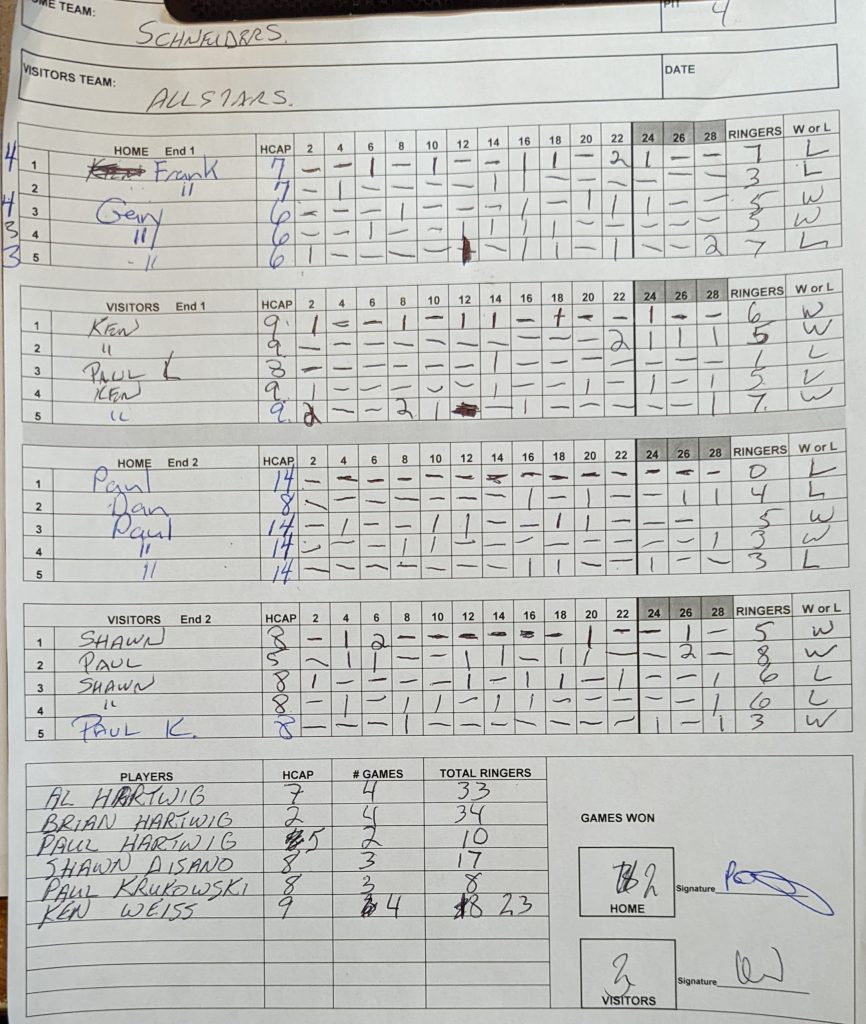 ME TEAM: SCHNEIDERS. PIT 4
VISITORS TEAM: ALLSTARS. DATE
HOME End 1 HCAP 2 4 6 8 10 12 14 16 18 20 22 24 26 28 RINGERS W or L
4 1 Frank 7 – – 1 – 1 – – 1 1 – 2 1 – – 7 L
2 " 7 – 1 – – – – 1 1 – – – – – – 3 L
4 3 Gary 6 – – – 1 – – – 1 – 1 1 1 – – 5 W
3 4 " 6 – – 1 – – 1 1 1 1 – – – – – 3 W
3 5 " 6 1 – – – – – 1 1 – 1 – – 2 7 L
VISITORS End 1 HCAP 2 4 6 8 10 12 14 16 18 20 22 24 26 28 RINGERS W or L
1 KEN 9 1 – – 1 – 1 1 – 1 – – 1 – – 6 W
2 " 9 – – – – – – – – – – 2 1 1 1 5 W
3 PAUL K 8 – – – – – – 1 – – – – – – – 1 L
4 KEN 9 1 – – – – – 1 – – 1 – 1 – 1 5 L
5 " 9 2 – – 2 1 – 1 – – – – – 1 7 W
HOME End 2 HCAP 2 4 6 8 10 12 14 16 18 20 22 24 26 28 RINGERS W or L
1 Paul 14 – – – – – – – – – – – – – – 0 L
2 Dan 8 – – – – – – – 1 – 1 – – 1 1 4 L
3 Paul 14 – 1 – – 1 1 – – 1 1 – – – 5 W
4 " 14 – – – 1 1 – – – – – – – – 1 3 W
5 " 14 – – – – – – – 1 1 – – 1 – – 3 L
VISITORS End 2 HCAP 2 4 6 8 10 12 14 16 18 20 22 24 26 28 RINGERS W or L
1 SHAWN 8 – 1 2 – – – – – – 1 – – 1 – 5 W
2 PAUL 5 – 1 1 – – 1 1 – 1 1 – – 2 – 8 W
3 SHAWN 8 1 – – – – 1 – 1 1 – 1 – – 1 6 L
4 " 8 – 1 – 1 1 – 1 1 – – – – – 1 6 L
5 PAUL K. 8 – – – 1 – – – – – – – 1 – 1 3 W
PLAYERS HCAP # GAMES TOTAL RINGERS
AL HARTWIG 7 4 33
BRIAN HARTWIG 2 4 34
PAUL HARTWIG 5 2 10
SHAWN DISANO 8 3 17
PAUL KRUKOWSKI 8 3 8
KEN WEISS 9 4 23
GAMES WON
2 HOME Signature
3 VISITORS Signature